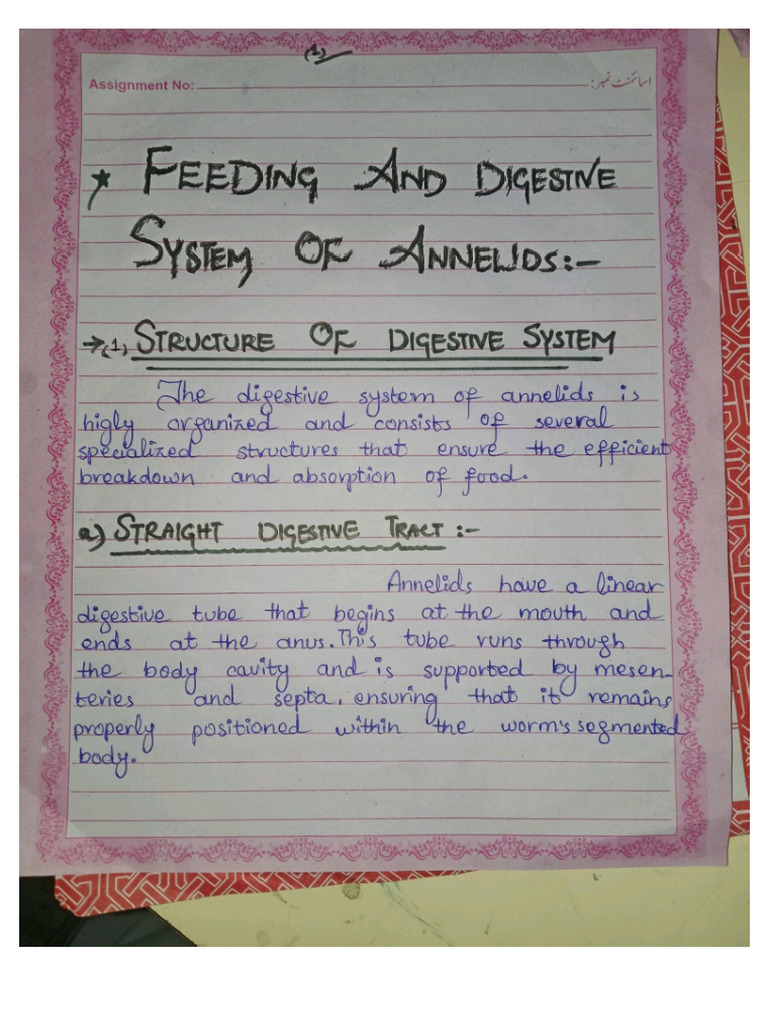 (1)
Assignment No: اسائمنٹ نمبر:
* FEEDING AND DIGESTIVE
SYSTEM OF ANNELIDS:-
→(1) STRUCTURE OF DIGESTIVE SYSTEM
The digestive system of annelids is
higly organized and consists of several
specialized structures that ensure the efficient
breakdown and absorption of food.
a) STRAIGHT DIGESTIVE TRACT :-
Annelids have a linear
digestive tube that begins at the mouth and
ends at the anus. This tube runs through
the body cavity and is supported by mesen-
teries and septa, ensuring that it remains
properly positioned within the worm's segmented
body.